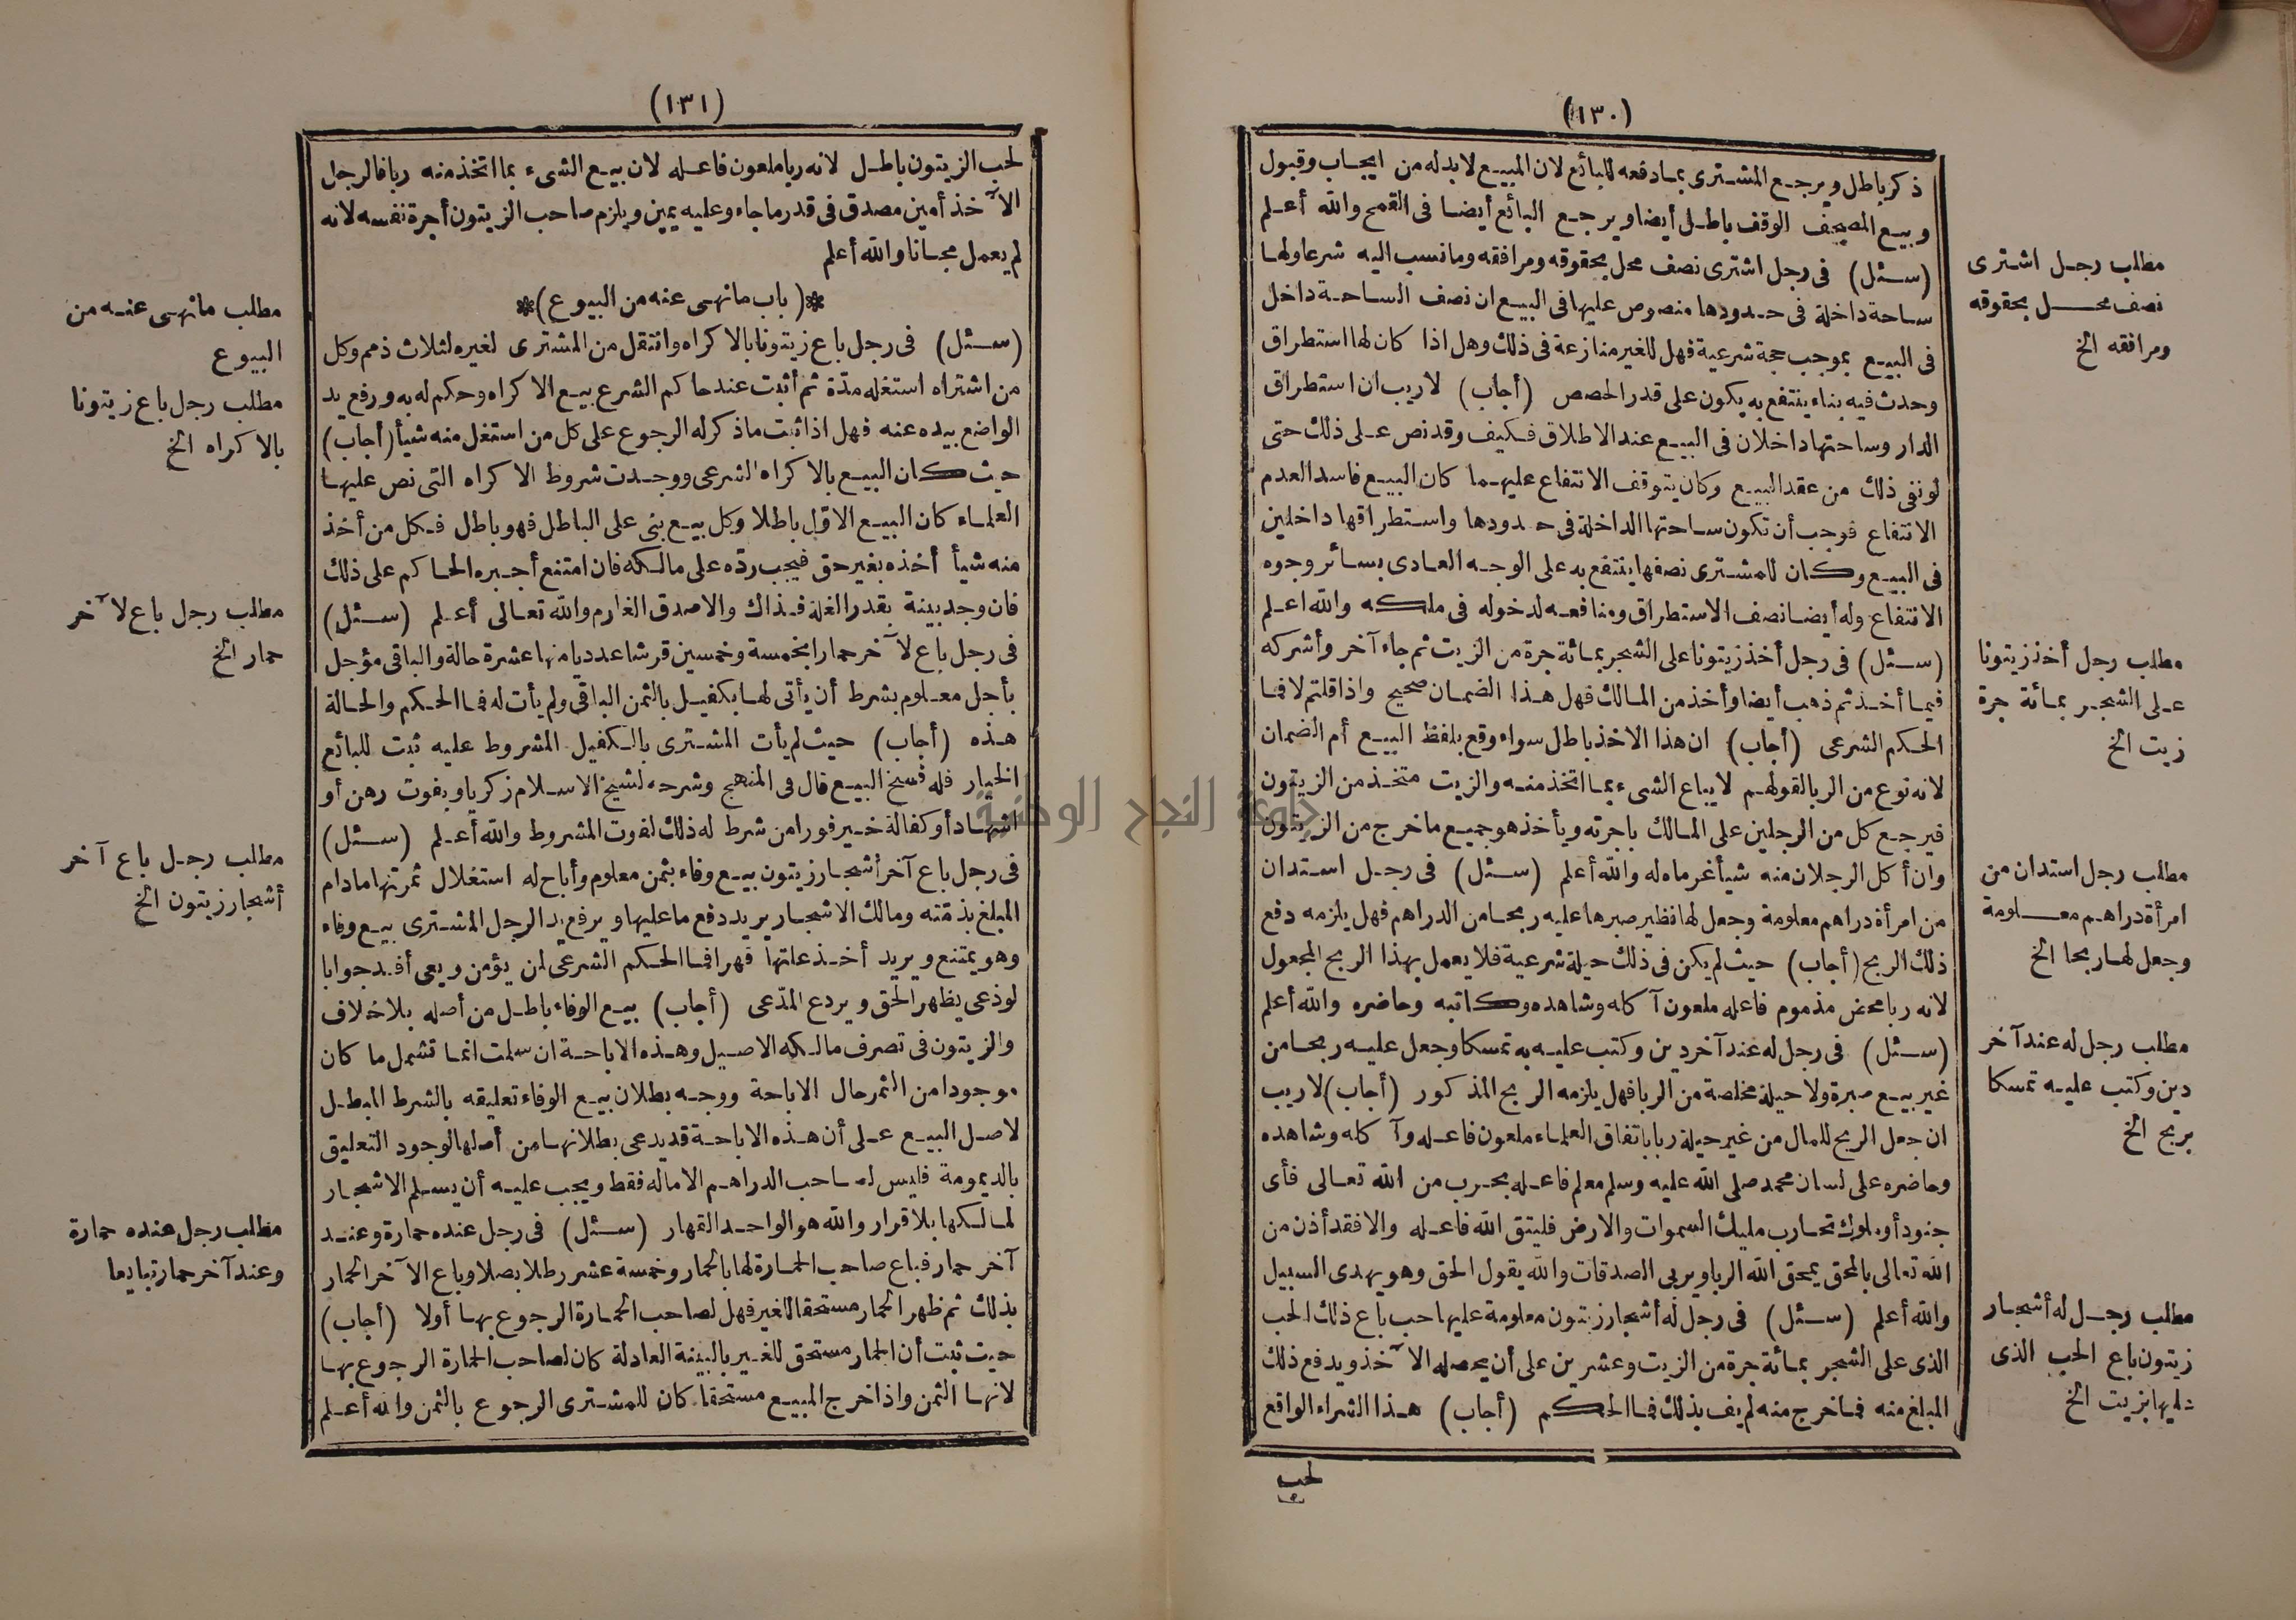 (١٣٠)
ذكر باطل ويرجع المشترى بما دفعه للبائع لان المبيع لا بدله من ايجاب وقبول
وبيع المصحف الوقف باطل أيضا ويرجع البائع أيضا فى القمح والله أعلم
(سئل) فى رجل اشترى نصف محل بحقوقه ومرافقه وما نسب اليه شرعا ولها
ساحة داخلة فى حدودها منصوص عليها فى البيع ان نصف الساحة داخل
فى البيع بموجب حجة شرعية فهل للغير منازعة فى ذلك وهل اذا كان لها استطراق
وحدث فيه بناء ينتفع به يكون على قدر الحصص (أجاب) لا ريب ان استطراق
الدار وساحتها داخلان فى البيع عند الاطلاق فكيف وقد نص على ذلك حتى
لو نفى ذلك من عقد البيع وكان يتوقف الانتفاع عليهما كان البيع فاسدا لعدم
الانتفاع فوجب أن تكون ساحتها الداخلة فى حدودها واستطراقها داخلين
فى البيع وكان للمشترى نصفها ينتفع به على الوجه العادى بسائر وجوه
الانتفاع وله أيضا نصف الاستطراق ومنافعه لدخوله فى ملكه والله اعلم
(سئل) فى رجل أخذ زيتونا على الشجر بمائة جرة من الزيت ثم جاء آخر وأشركه
فيما أخذ ثم ذهب أيضا وأخذ من المالك فهل هذا الضمان صحيح واذا قلتم لا فما
الحكم الشرعى (أجاب) ان هذا الاخذ باطل سواء وقع بلفظ البيع أم الضمان
لانه نوع من الربا لقولهم لا يباع الشىء بما اتخذ منه والزيت متخذ من الزيتون
فيرجع كل من الرجلين على المالك باجرته ويأخذ هو جميع ما خرج من الزيتون
وان أكل الرجلان منه شيأ غرماه له والله أعلم (سئل) فى رجل استدان
من امرأة دراهم معلومة وجعل لها نظير صبرها عليه ربحا من الدراهم فهل يلزمه دفع
ذلك الربح (أجاب) حيث لم يكن فى ذلك حيلة شرعية فلا يعمل بهذا الربح المجعول
لانه ربا محض مذموم فاعله ملعون آكله وشاهده وكاتبه وحاضره والله أعلم
(سئل) فى رجل له عند آخر دين وكتب عليه به تمسكا وجعل عليه ربحا من
غير بيع صبرة ولا حيلة مخلصة من الربا فهل يلزمه الربح المذكور (أجاب) لا ريب
ان جعل الربح للمال من غير حيلة ربا باتفاق العلماء ملعون فاعله وآكله وشاهده
وحاضره على لسان محمد صلى الله عليه وسلم معلم فاعله بحرب من الله تعالى فأى
جنود أو ملوك تحارب مليك السموات والارض فليتق الله فاعله والا فقد أذن من
الله تعالى بالمحق يمحق الله الربا ويربى الصدقات والله يقول الحق وهو يهدى السبيل
والله أعلم (سئل) فى رجل له أشجار زيتون معلومة عليها حب باع ذلك الحب
الذى على الشجر بمائة جرة من الزيت وعشرين على أن يحصله الآخذ ويدفع ذلك
المبلغ منه فما خرج منه لم يف بذلك فما الحكم (أجاب) هذا الشراء الواقع
لحب
مطلب رجل اشترى
نصف محل بحقوقه
ومرافقه الخ
مطلب رجل أخذ زيتونا
على الشجر بمائة جرة
زيت الخ
مطلب رجل استدان من
امرأة دراهم معلومة
وجعل لها ربحا الخ
مطلب رجل له عند آخر
دين وكتب عليه تمسكا
بربح الخ
مطلب رجل له أشجار
زيتون باع الحب الذى
عليها بزيت الخ
(١٣١)
لحب الزيتون باطل لانه ربا ملعون فاعله لان بيع الشىء بما اتخذ منه ربا فالرجل
الآخذ أمين مصدق فى قدر ما جاء وعليه يمين ويلزم صاحب الزيتون أجرة نفسه لانه
لم يعمل مجانا والله أعلم
*(باب ما نهى عنه من البيوع)*
(سئل) فى رجل باع زيتونا بالاكراه وانتقل من المشترى لغيره لثلاث ذمم وكل
من اشتراه استغله مدّة ثم أثبت عند حاكم الشرع بيع الاكراه وحكم له به ورفع يد
الواضع بيده عنه فهل اذا ثبت ما ذكر له الرجوع على كل من استغل منه شيأ (أجاب)
حيث كان البيع بالاكراه الشرعى ووجدت شروط الاكراه التى نص عليها
العلماء كان البيع الاوّل باطلا وكل بيع بنى على الباطل فهو باطل فكل من أخذ
منه شيأ أخذه بغير حق فيجب ردّه على مالكه فان امتنع أجبره الحاكم على ذلك
فان وجد بينة بقدر الغلة فذاك والا صدق الغارم والله تعالى أعلم (سئل)
فى رجل باع لآخر حمارا بخمسة وخمسين قرشا عدديا منها عشرة حالة والباقى مؤجل
بأجل معلوم بشرط أن يأتى لها بكفيل بالثمن الباقى ولم يأت له فما الحكم والحالة
هذه (أجاب) حيث لم يأت المشترى بالكفيل المشروط عليه ثبت للبائع
الخيار فله فسخ البيع قال فى المنهج وشرحه لشيخ الاسلام زكريا وبفوت رهن أو
اشهاد أو كفالة خير فورا من شرط له ذلك لفوت المشروط والله أعلم (سئل)
فى رجل باع آخر أشجار زيتون بيع وفاء بثمن معلوم وأباح له استغلال ثمرتها مادام
المبلغ بذمّته ومالك الاشجار يريد دفع ما عليها ويرفع يد الرجل المشترى بيع وفاء
وهو يمتنع ويريد أخذ غلتها قهرا فما الحكم الشرعى لمن يؤمن ويعى أفيد جوابا
لوذعى يظهر الحق ويردع المدّعى (أجاب) بيع الوفاء باطل من أصله بلا خلاف
والزيتون فى تصرف مالكه الاصيل وهذه الاباحة ان سلمت انما تشمل ما كان
موجودا من الثمر حال الاباحة ووجه بطلان بيع الوفاء تعليقه بالشرط المبطل
لاصل البيع على أن هذه الاباحة قد يدعى بطلانها من أصلها لوجود التعليق
بالديمومة فليس لصاحب الدراهم الا ماله فقط ويجب عليه أن يسلم الاشجار
لمالكها بلا قرار والله هو الواحد القهار (سئل) فى رجل عنده حمارة وعند
آخر حمار فباع صاحب الحمارة لها بالحمار وخمسة عشر رطلا بصلا وباع الآخر الحمار
بذلك ثم ظهر الحمار مستحقا للغير فهل لصاحب الحمارة الرجوع بها أولا (أجاب)
حيث ثبت أن الحمار مستحق للغير بالبينة العادلة كان لصاحب الحمارة الرجوع بها
لانها الثمن واذا خرج المبيع مستحقا كان للمشترى الرجوع بالثمن والله أعلم
مطلب ما نهى عنه من
البيوع
مطلب رجل باع زيتونا
بالاكراه الخ
مطلب رجل باع لآخر
حمار الخ
مطلب رجل باع آخر
أشجار زيتون الخ
مطلب رجل عنده حمارة
وعند آخر حمار تبايعا
جامعة النجاح الوطنية